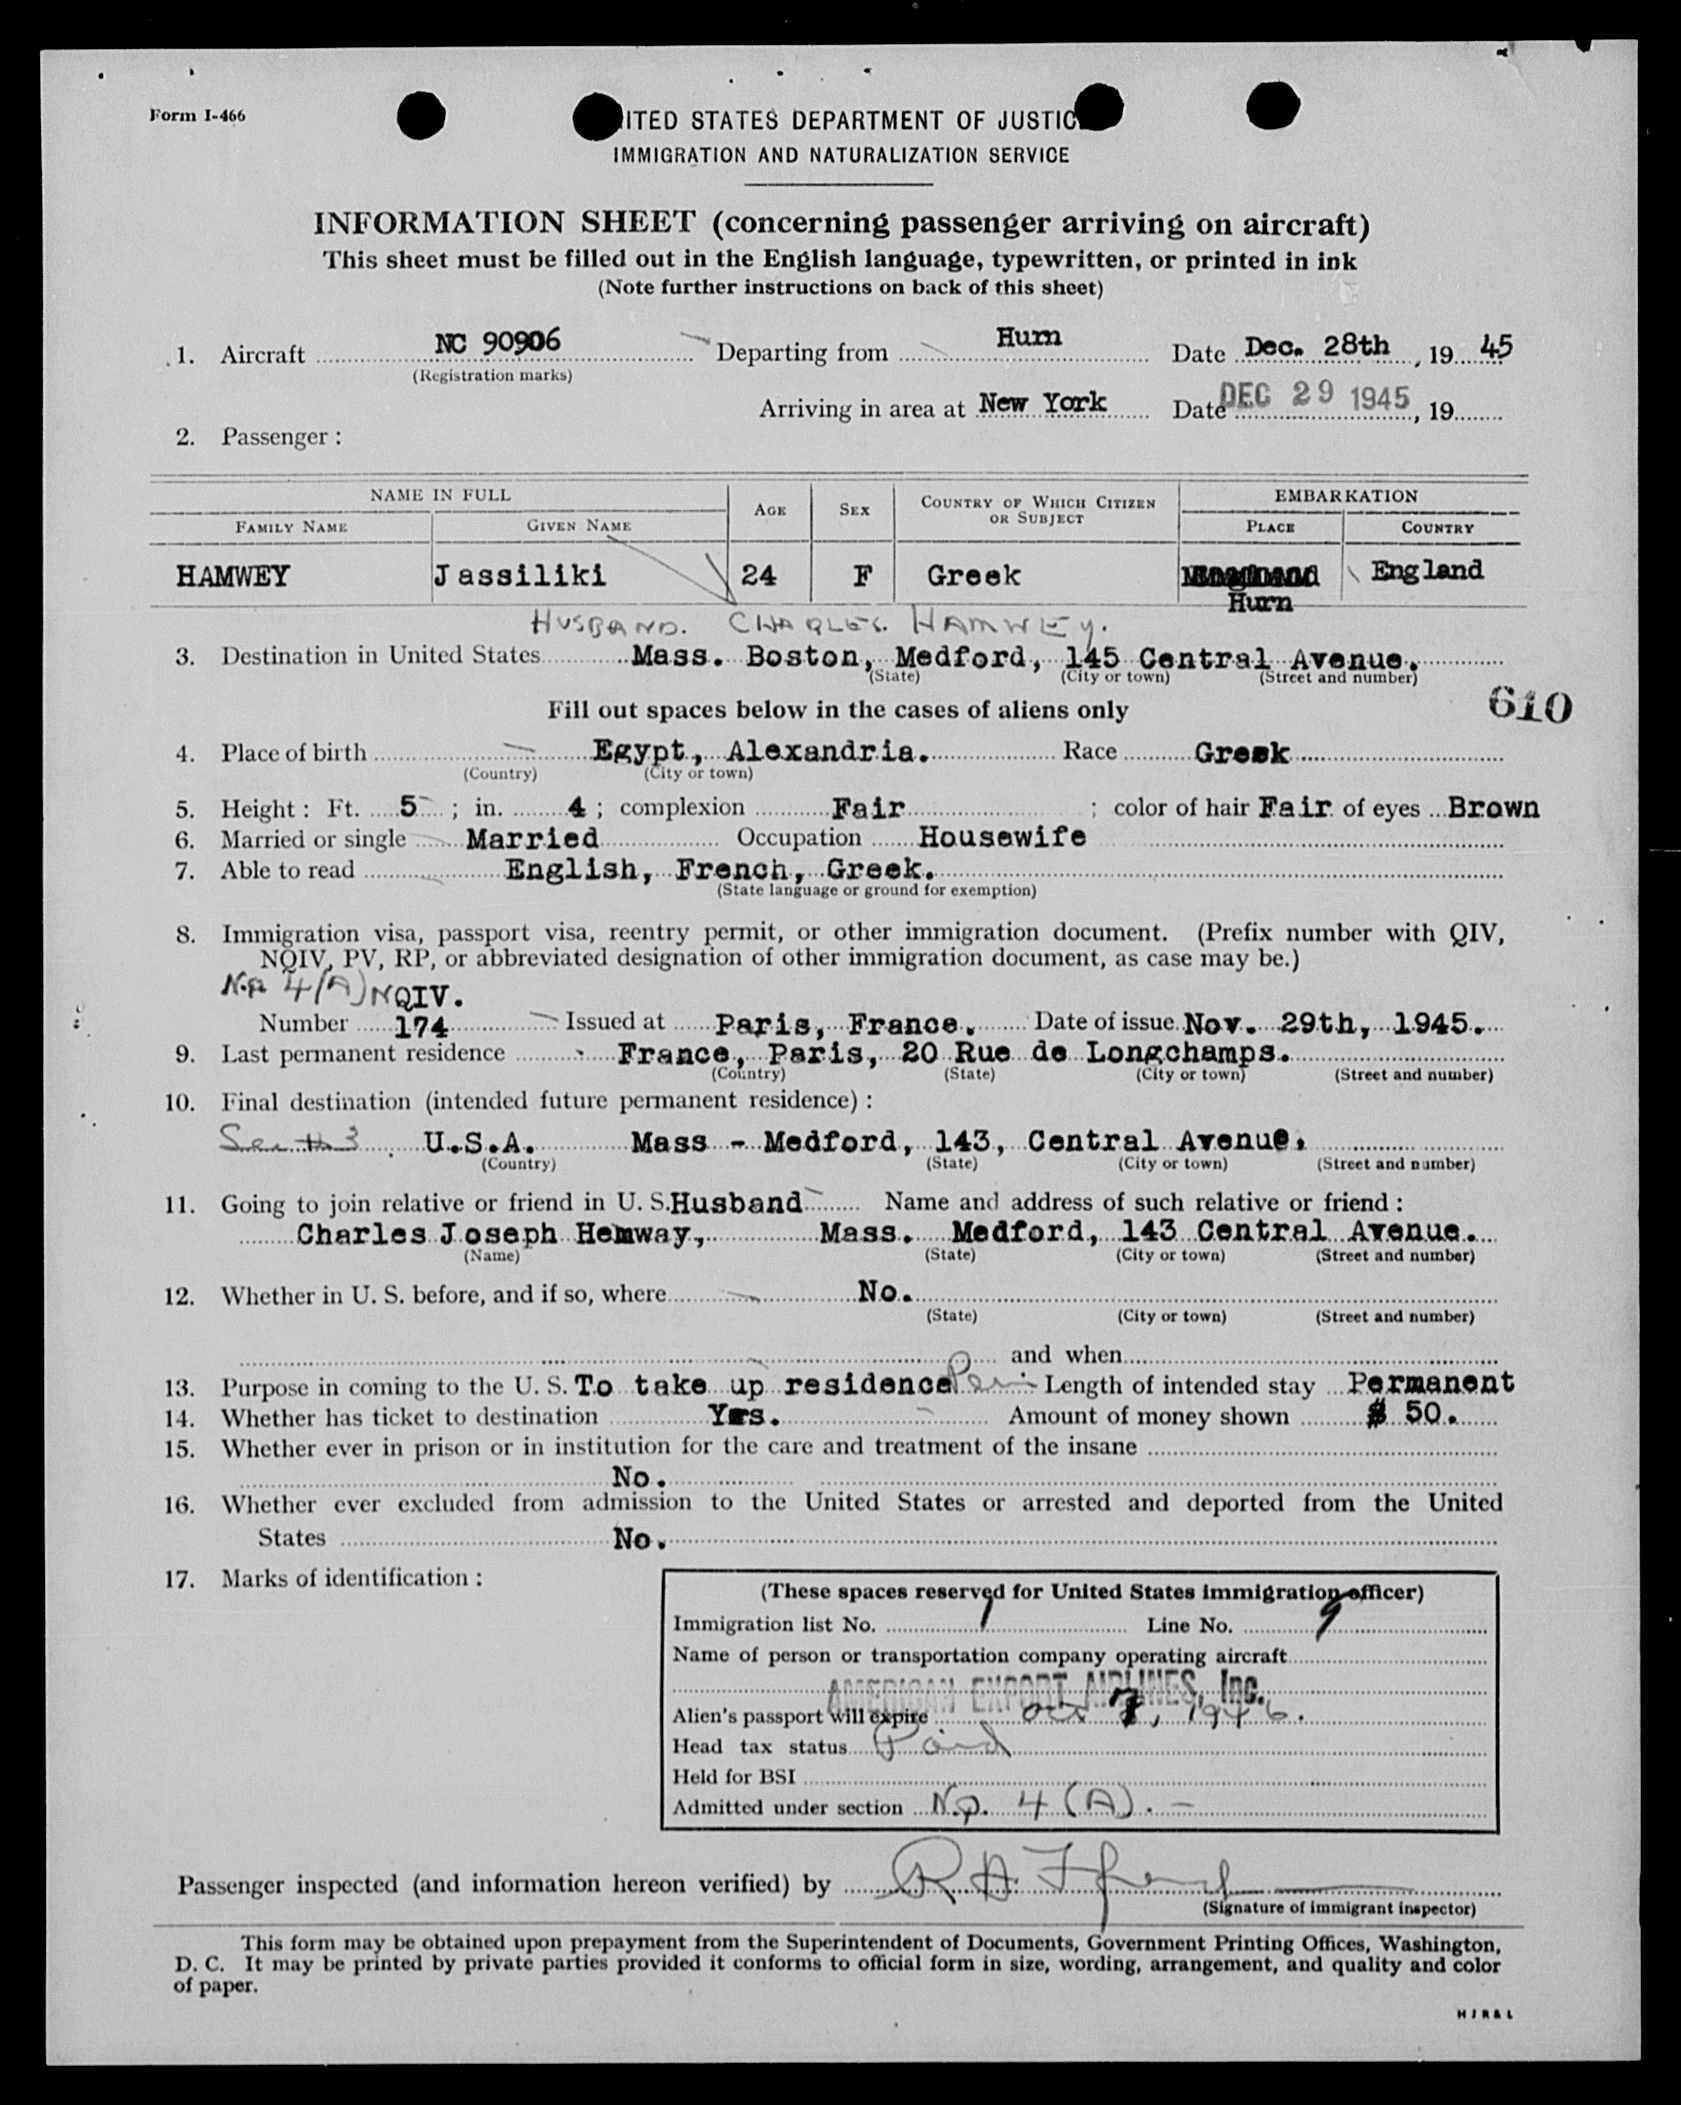 Form I-466
ITED STATES DEPARTMENT OF JUSTIC
IMMIGRATION AND NATURALIZATION SERVICE
INFORMATION SHEET (concerning passenger arriving on aircraft)
This sheet must be filled out in the English language, typewritten, or printed in ink
(Note further instructions on back of this sheet)
1. Aircraft NC 90906 Departing from Hurn Date Dec. 28th, 19 45
(Registration marks)
Arriving in area at New York Date DEC 29 1945, 19
2. Passenger:
NAME IN FULL AGE SEX COUNTRY OF WHICH CITIZEN OR SUBJECT EMBARKATION
FAMILY NAME GIVEN NAME PLACE COUNTRY
HAMWEY Jassiliki 24 F Greek England
Hurn
HUSBAND. CHARLES. HAMWEY.
3. Destination in United States Mass. Boston, Medford, 145 Central Avenue.
(State) (City or town) (Street and number)
Fill out spaces below in the cases of aliens only
610
4. Place of birth Egypt, Alexandria. Race Greek
(Country) (City or town)
5. Height: Ft. 5; in. 4; complexion Fair; color of hair Fair of eyes Brown
6. Married or single Married Occupation Housewife
7. Able to read English, French, Greek.
(State language or ground for exemption)
8. Immigration visa, passport visa, reentry permit, or other immigration document. (Prefix number with QIV,
NQIV, PV, RP, or abbreviated designation of other immigration document, as case may be.)
N.p. 4(A) NQIV.
Number 174 Issued at Paris, France. Date of issue Nov. 29th, 1945.
9. Last permanent residence France, Paris, 20 Rue de Longchamps.
(Country) (State) (City or town) (Street and number)
10. Final destination (intended future permanent residence):
See # 3 U.S.A. Mass - Medford, 143, Central Avenue.
(Country) (State) (City or town) (Street and number)
11. Going to join relative or friend in U. S. Husband Name and address of such relative or friend:
Charles Joseph Hemway, Mass. Medford, 143 Central Avenue.
(Name) (State) (City or town) (Street and number)
12. Whether in U. S. before, and if so, where No.
(State) (City or town) (Street and number)
and when
13. Purpose in coming to the U. S. To take up residence Per. Length of intended stay Permanent
14. Whether has ticket to destination Yes. Amount of money shown $ 50.
15. Whether ever in prison or in institution for the care and treatment of the insane
No.
16. Whether ever excluded from admission to the United States or arrested and deported from the United
States No.
17. Marks of identification:
(These spaces reserved for United States immigration officer)
Immigration list No. 1 Line No. 9
Name of person or transportation company operating aircraft
AMERICAN EXPORT AIRLINES, Inc.
Alien's passport will expire Oct 7, 1946.
Head tax status Paid
Held for BSI
Admitted under section N.p. 4 (A). -
Passenger inspected (and information hereon verified) by
(Signature of immigrant inspector)
This form may be obtained upon prepayment from the Superintendent of Documents, Government Printing Offices, Washington,
D. C. It may be printed by private parties provided it conforms to official form in size, wording, arrangement, and quality and color
of paper.
HJR&L